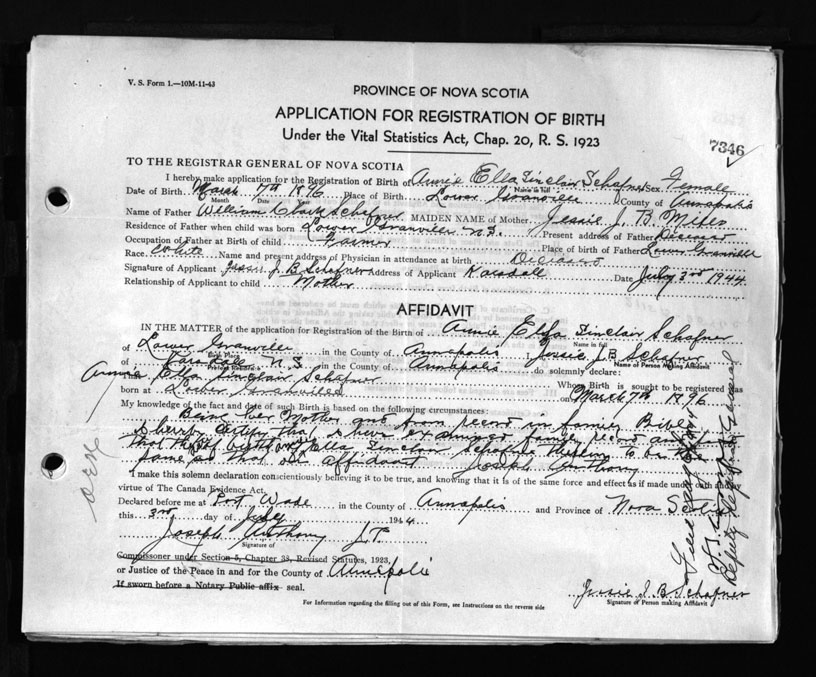 V. S. Form 1.—10M-11-43
PROVINCE OF NOVA SCOTIA
APPLICATION FOR REGISTRATION OF BIRTH
Under the Vital Statistics Act, Chap. 20, R. S. 1923
7346
TO THE REGISTRAR GENERAL OF NOVA SCOTIA
I hereby make application for the Registration of Birth of Annie Ella Sinclair Schafner Sex Female
Name in full
Date of Birth March 7th 1896 Place of Birth Lower Granville County of Annapolis
Month Date
Name of Father William Clark Schafner MAIDEN NAME of Mother Jessie J. B. Mills
Residence of Father when child was born Lower Granville N.S. Present address of Father Deceased
Occupation of Father at Birth of child Farmer Place of birth of Father Lower Granville
Race White Name and present address of Physician in attendance at birth Deceased
Signature of Applicant Jessie J B Schafner Address of Applicant Karsdale Date July 3rd 1944
Relationship of Applicant to child Mother
AFFIDAVIT
IN THE MATTER of the application for Registration of the Birth of Annie Ella Sinclair Schafner
Name in full
of Lower Granville in the County of Annapolis I, Jessie J.B. Schafner
Birth Place Name of Person Making Affidavit
of Karsdale N.S. in the County of Annapolis do solemnly declare:
Present Residence
Annie Ella Sinclair Schafner Whose Birth is sought to be registered was
born at Lower Granville on March 7th 1896
My knowledge of the fact and date of such Birth is based on the following circumstances:
Being her Mother and from record in family Bible
I hereby certify that I have examined family record and
that the of birth of Ella Sinclair Schafner to be the
same as that on affidavit Joseph Anthony
I make this solemn declaration conscientiously believing it to be true, and knowing that it is of the same force and effect as if made under oath and by
virtue of The Canada Evidence Act.
Declared before me at Port Wade in the County of Annapolis and Province of Nova Scotia
this 3rd day of July 1944
Joseph Anthony J.P.
Signature of
Commissioner under Section 5, Chapter 38, Revised Statutes, 1923,
or Justice of the Peace in and for the County of Annapolis
If sworn before a Notary Public affix seal.
Jessie J. B. Schafner
Signature of Person making Affidavit
For Information regarding the filling out of this Form, see Instructions on the reverse side
Deputy Registrar General